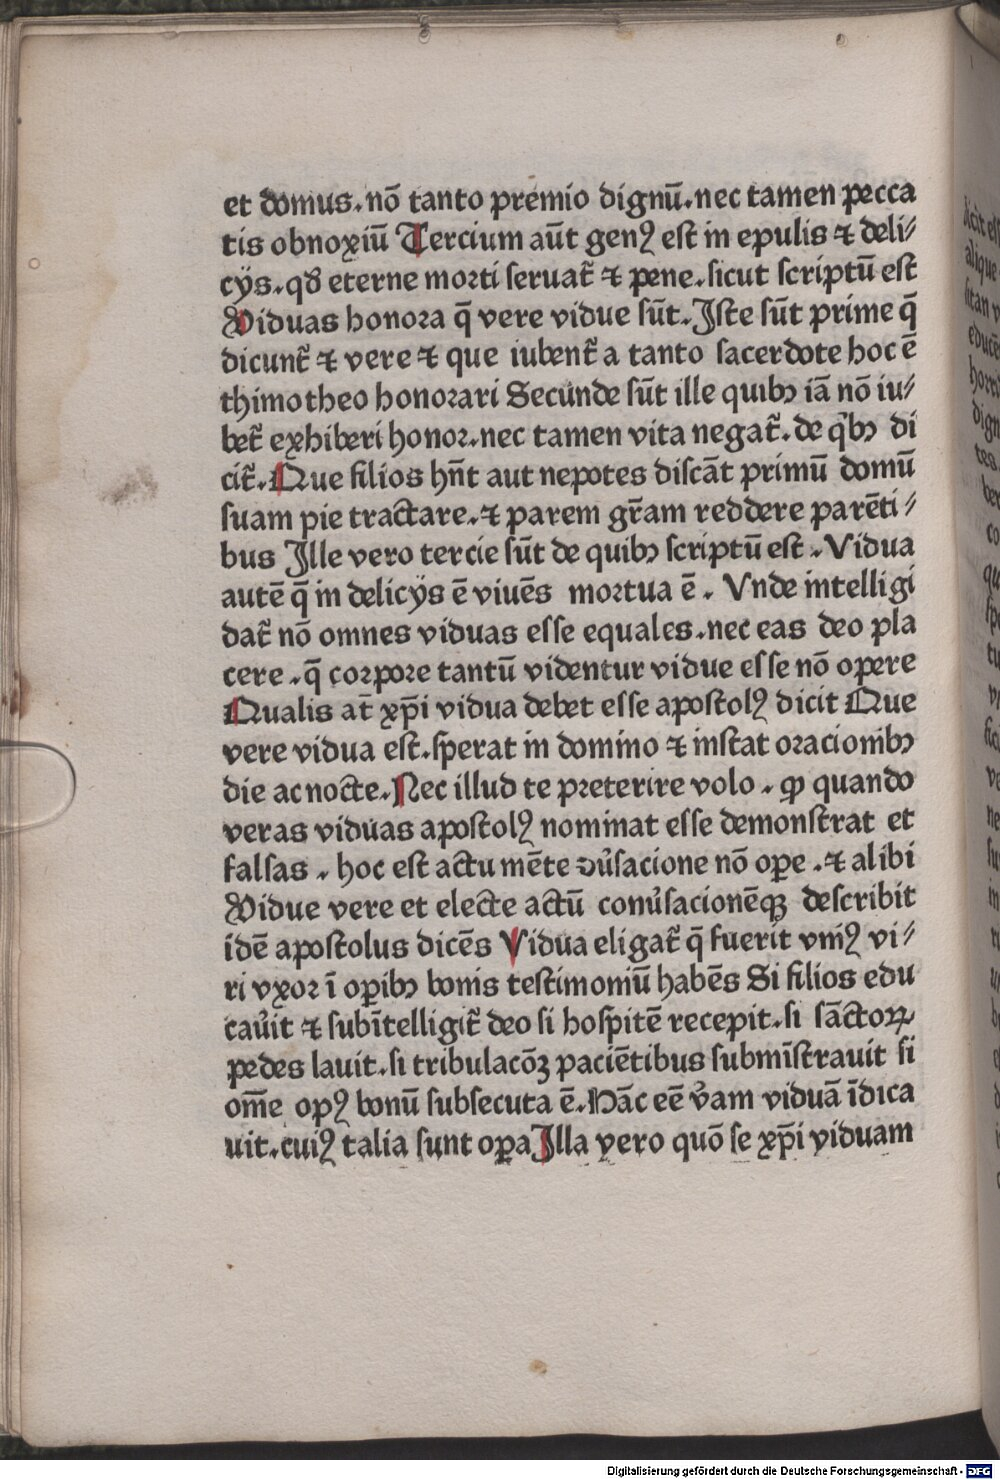 et domus. nō tanto premio dignū. nec tamen pecca
tis obnoxiū Tercium aūt genꝰ est in epulis ⁊ deli⸗
cijs. qđ eterne morti seruat̄ ⁊ pene. sicut scriptū est
Viduas honora q̄ vere vidue sūt. Iste sūt prime q̄
dicunt̄ ⁊ vere ⁊ que iubent̄ a tanto sacerdote hoc ē
thimotheo honorari Secunde sūt ille quibꝫ iā nō iu⸗
bet̄ exhiberi honor. nec tamen vita negat̄. de qͥbꝫ di
cit̄. Que filios hn̄t aut nepotes discāt primū domū
suam pie tractare. ⁊ parem gr̄am reddere parēti⸗
bus Ille vero tercie sūt de quibꝫ scriptū est. Vidua
autē q̄ in delicijs ē viuēs mortua ē. Vnde intelligi
dat̄ nō omnes viduas esse equales. nec eas deo pla
cere. q̄ corpore tantū videntur vidue esse nō opere
Qualis at̄ xp̄i vidua debet esse apostolꝰ dicit Que
vere vidua est. sperat in domino ⁊ instat oracionibꝫ
die ac nocte. Nec illud te preterire volo. ꝙ quando
veras viduas apostolꝰ nominat esse demonstrat et
falsas. hoc est actu mēte ↄu̾sacione nō oꝑe. ⁊ alibi
Vidue vere et electe actū conu̾sacionēqꝫ describit
idē apostolus dicēs Vidua eligat̄ q̄ fuerit vniꝰ vi⸗
ri vxor ī oꝑibꝫ bonis testimoniū habēs Si filios edu
cau̾it ⁊ subītelligit̄ deo si hospitē recepit. si sāctoꝝ
pedes lauit. si tribulacōꝫ paciētibus submīstrauit si
om̄e opꝰ bonū subsecuta ē. Hāc eē v̾am viduā īdica
uit. cuiꝰ talia sunt oꝑa Illa vero quō se xp̄i viduam
Digitalisierung gefördert durch die Deutsche Forschungsgemeinschaft - DFG